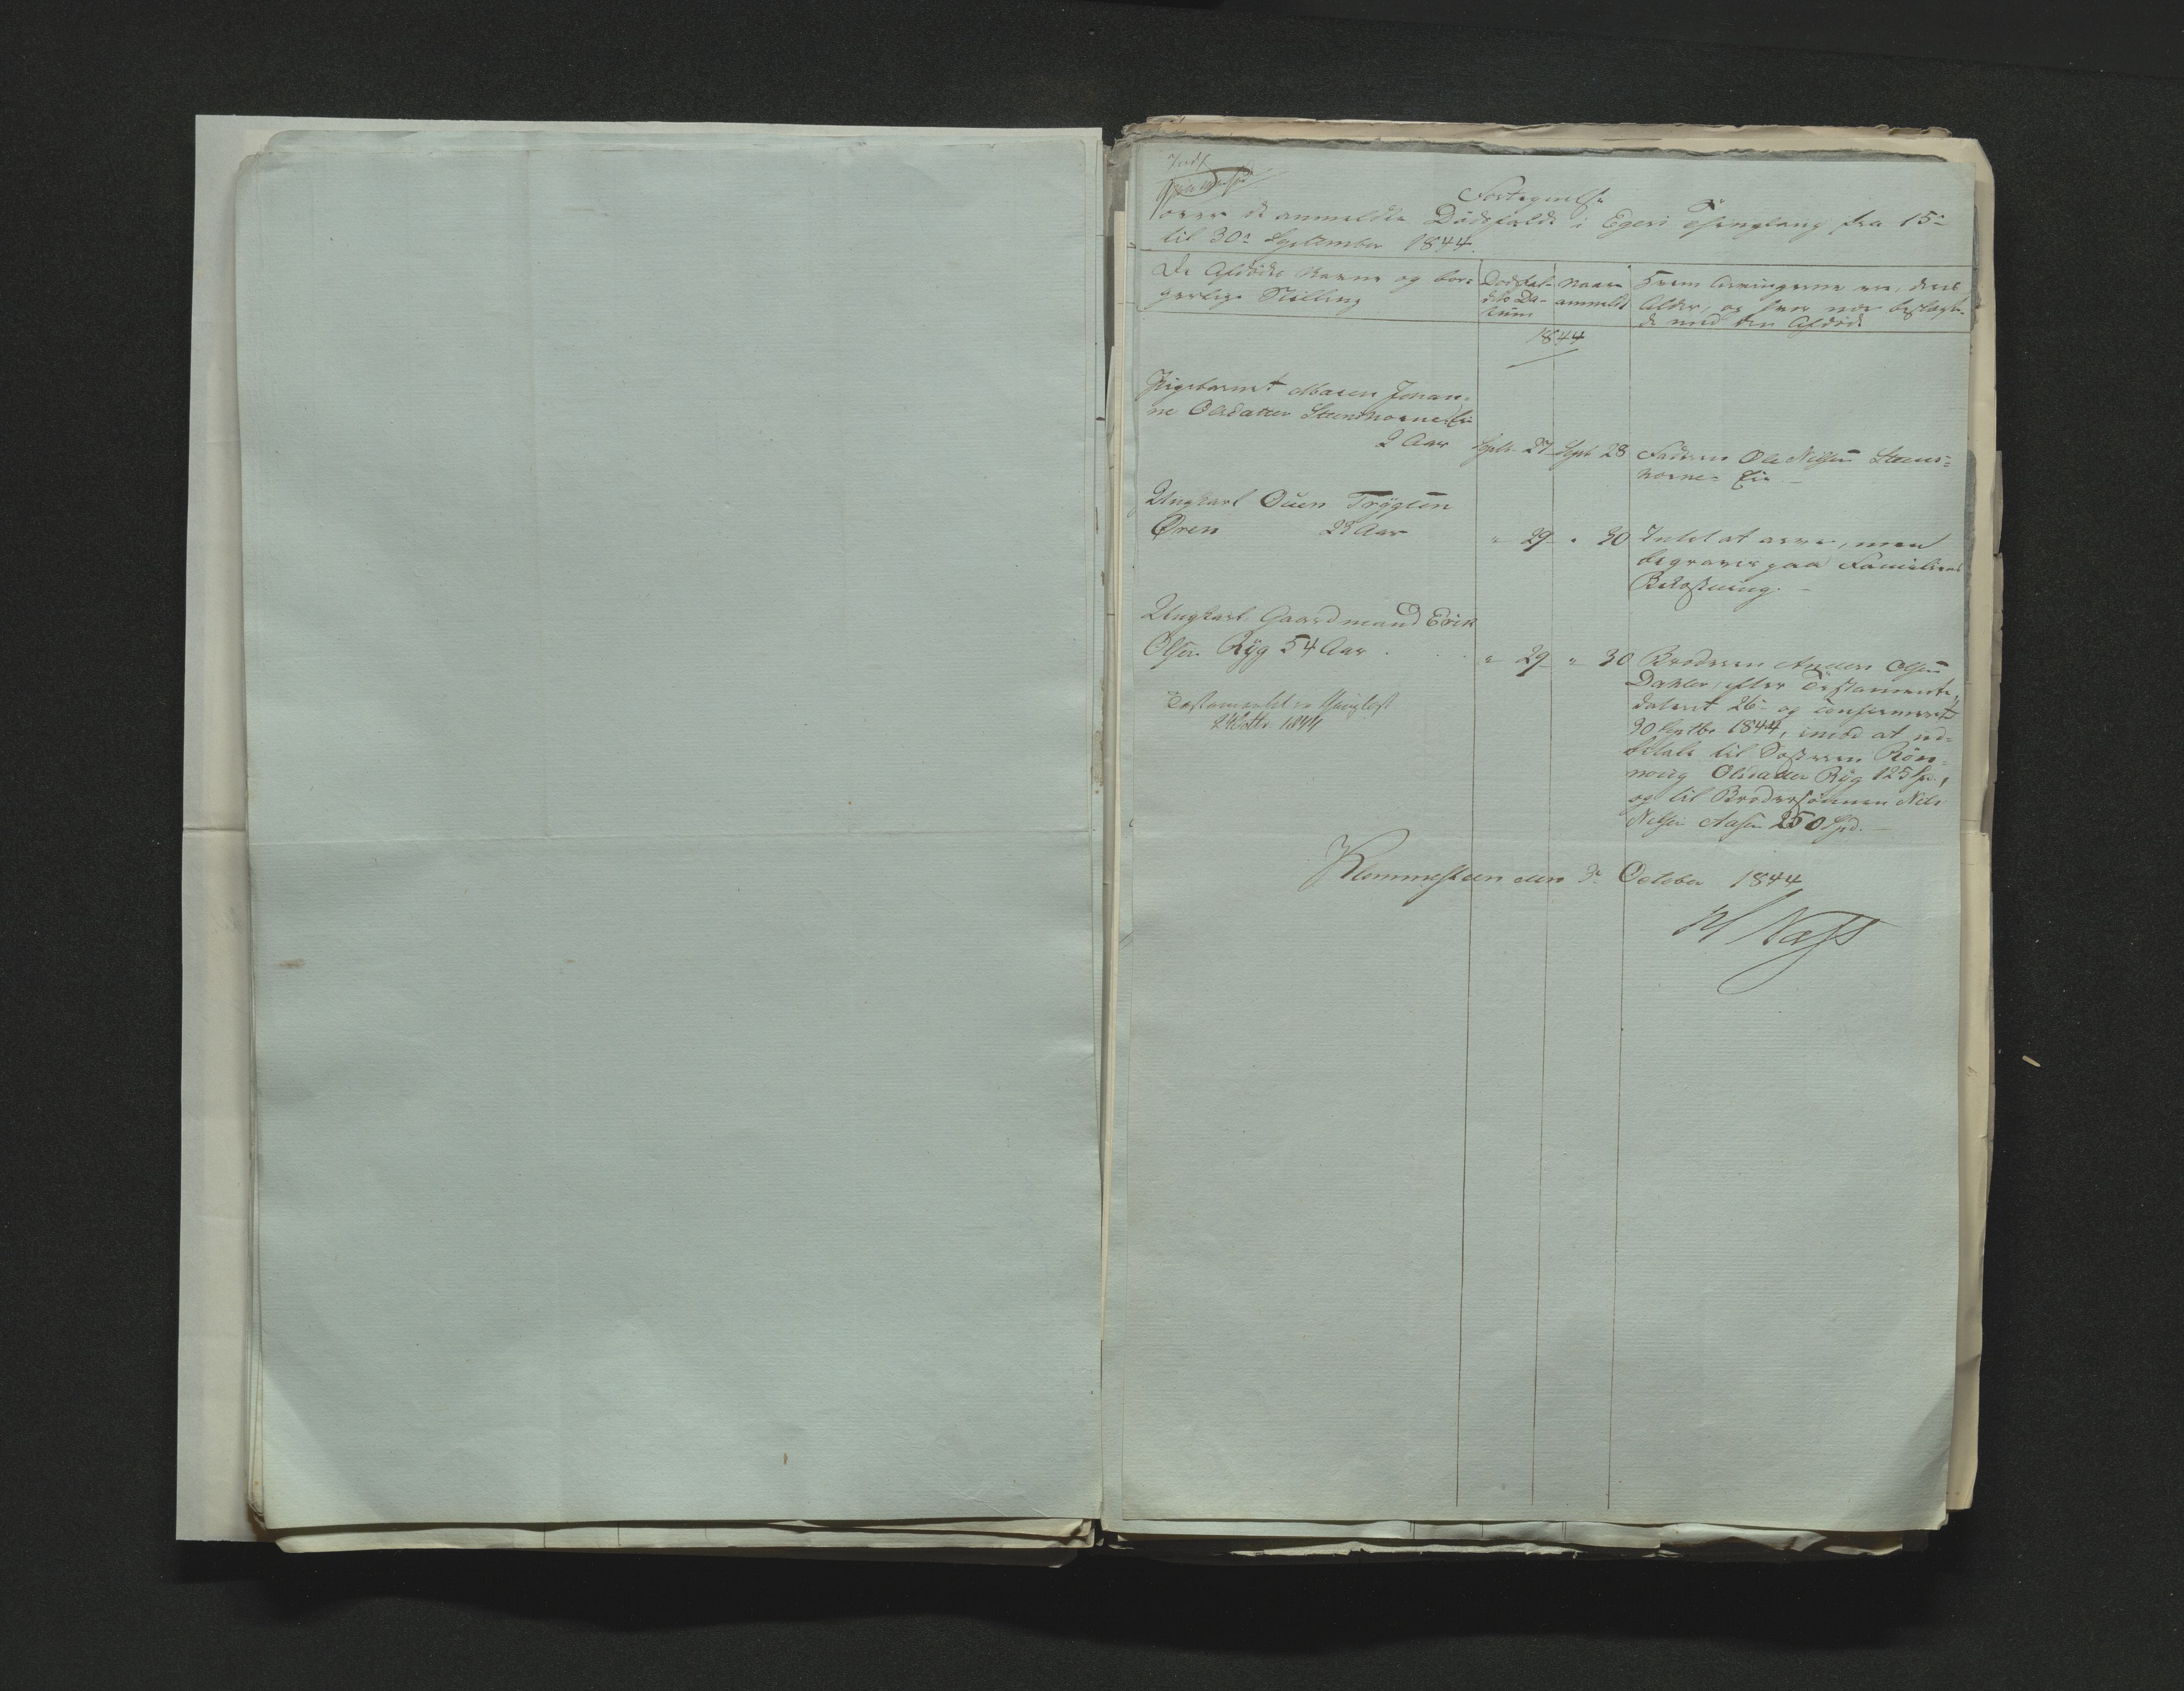 Indf
Fortegnelse
over de anmeldte Dødsfald i Egers Thinglaug fra 15de
til 30te September 1844.
De Afdødes Navne og bor-
gerlige Stilling
Dødsfal-
dets Da-
tum
Naar
anmeldt
Hvem Arvingerne ere, deres
Alder, og hvor nær beslægte-
de med den Afdøde
1844
Pigebarnet Maren Johan-
ne Olsdatter Steenshorne Eie
2 Aar
Septr 27
Sept 28
Faderen Ole Nilsen Steens-
horne Eie
Ungkarl Ouen Trygsen
Øren 23 Aar
" 29
" 30
Intet at arve, men
begraves paa Familiens
Bekostning.
Ungkarl Gaardmand Erik
Olsen Ryg 54 Aar
" 29
" 30
Broderen Anders Olsen
Dahler, efter Testamente,
dateret 26de og confirmeret
30 Septbr 1844, imod at ud-
betale til Søsteren Røn-
noug Olsdatter Ryg 125 Spd.,
og til Brodersønnen Nils
Nilsen Aasen 250 Spd.
Testamentet er thinglæst
Octbr 1844
Klommesteen den 3de October 1844
Næss